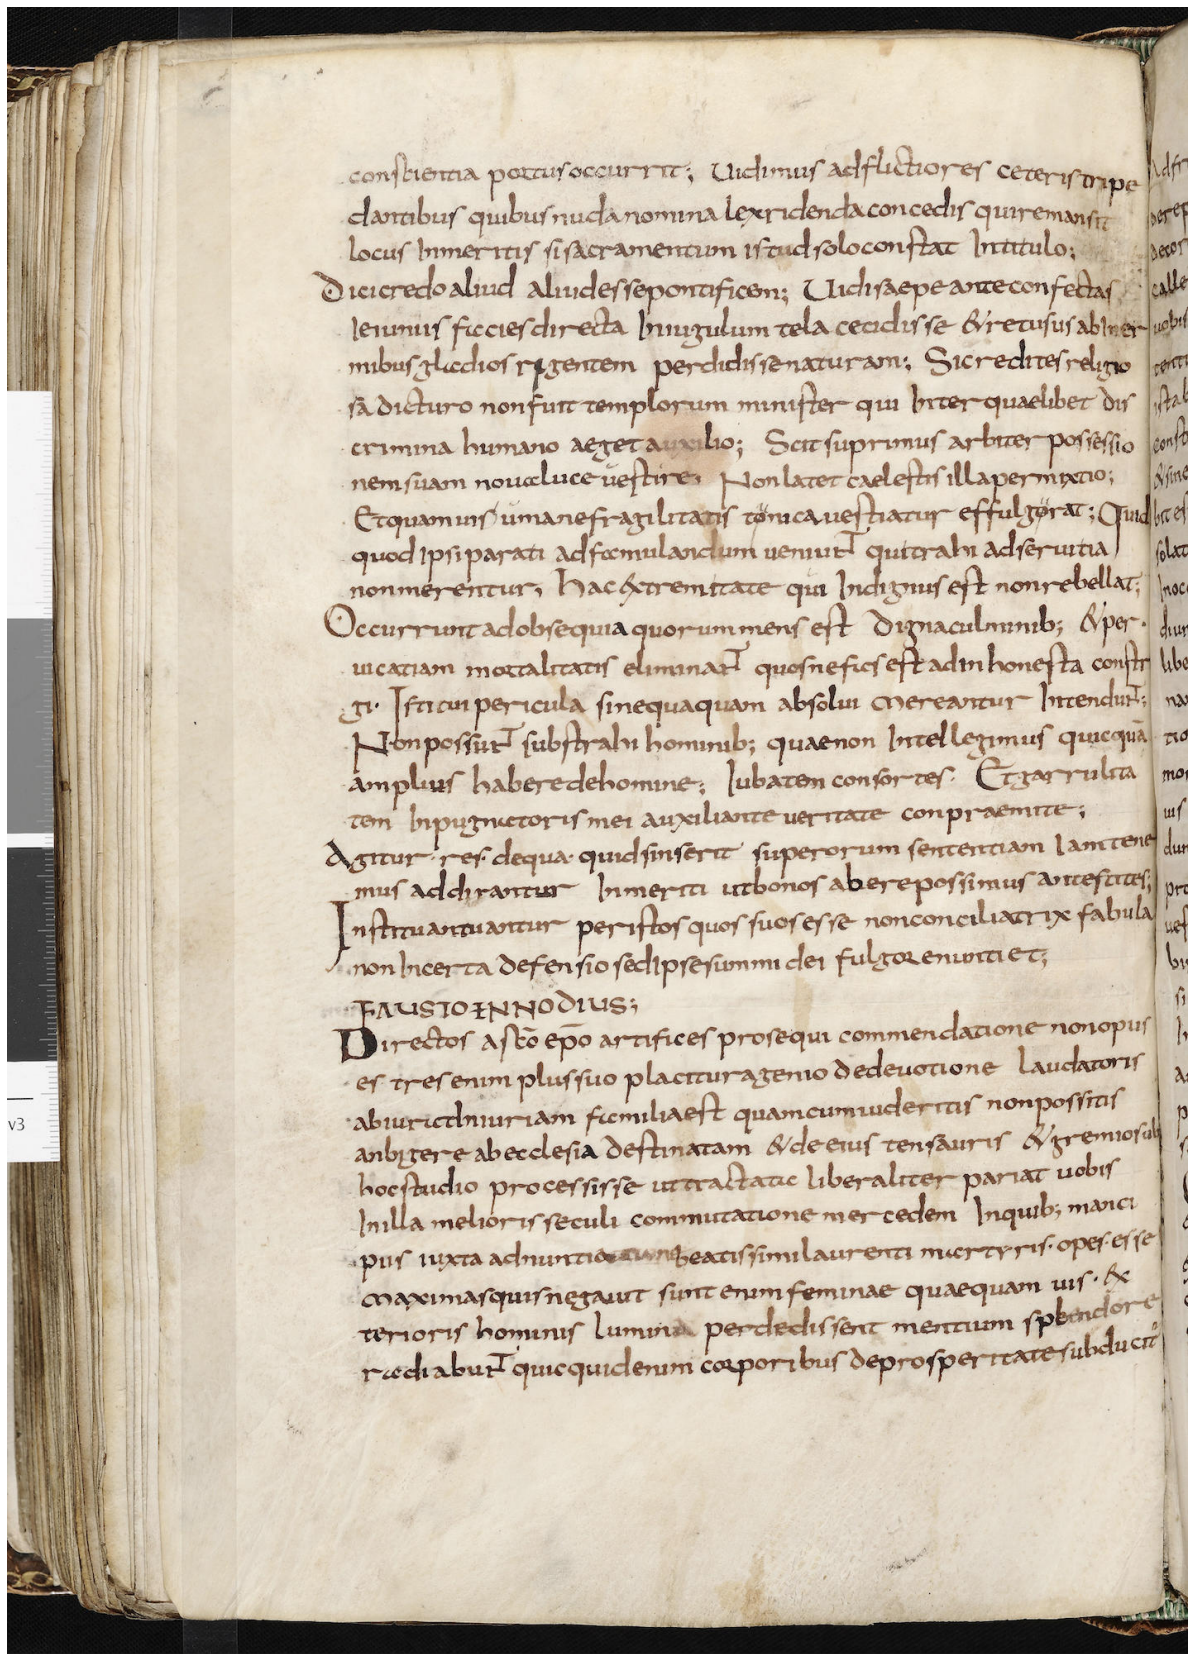 conscientia potius occurrit; Uidimus adflictiores ceteris tripe
dantibus quibus nuda nomina lex ridenda concedis qui remansit
locus inmeritis si sacramentum istud solo constat intitulo;
Dici credo aliud aliud esse pontificem; Uidi saepe ante confectas
ieiuniis facies directa iniugulum tela cecidisse & retusus ab iner
mibus gladios rigentem perdidisse naturam; Sic redites religio
sa dicturo non fuit templorum minister qui inter quaelibet dis
crimina humano aeget auxilio; Scit suprimus arbiter possessio
nem suam noua luce uestire; Non latet caelestis illa permixtio;
Et quam uis umane fragilitatis tonica uestiatur effulgorat; Quid
quod ipsi parati ad famulandum ueniunt qui trahi ad seruitia
non merentur, hac &tremitate qui indignus est non rebellat;
Occurrunt ad obsequia quorum mens est digna culminib; & per
uicatiam mortalitatis eliminant quos nefics est ad inhonesta constr
gi. Isti cui pericula sinequaquam absolui mereantur intendunt;
Non possunt substrahi hominib; quae non intellegimus quicquā
amplius habere de homine; Iubatem consortes. Et garrulita
tem inpugnatoris mei auxiliante ueritate conpraemite;
Agitur. res. de qua. quid sinserit superorum sententiam iam tene
mus addirantur inmeriti ut bonos abere possimus antestites;
Instituantuantur per istos quos suos esse non conciliatrix fabula
non incerta defensio sed ipse summi dei fulgor enuntiet;
FAUSTO ENNODIUS;
Directos a sc̄o ep̄o artifices prosequi commendatione non opus
es tres enim plus suo placitura genio de deuotione laudatoris
abiurat iniuriam familia est quam cum uideritis non possitis
anbigere ab ecclesia destinatam & de eius tensauris & gremio sub
hoc studio processisse ut tractatae liberaliter pariat uobis
In illa melioris seculi commutatione mercedem In quib; manci
piis iuxta adnuntiationem beatissimi laurenti martyris. opes. esse
maximas quis negauit sunt enim feminae quae quam uis. &
terioris hominis lumina perdedissent mentium splendore
radiabunt quicquid enim corporibus de prosperitate subducit̄